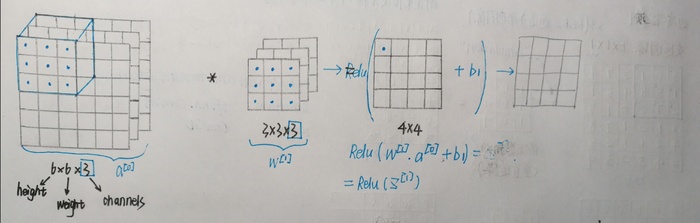 * → Relu( + b1 ) →
3×3×3
4×4
w[1]
6×6×3
a[0]
Relu(w[1]. a[0]+b1)=
height weight channels
=Relu(z[1])